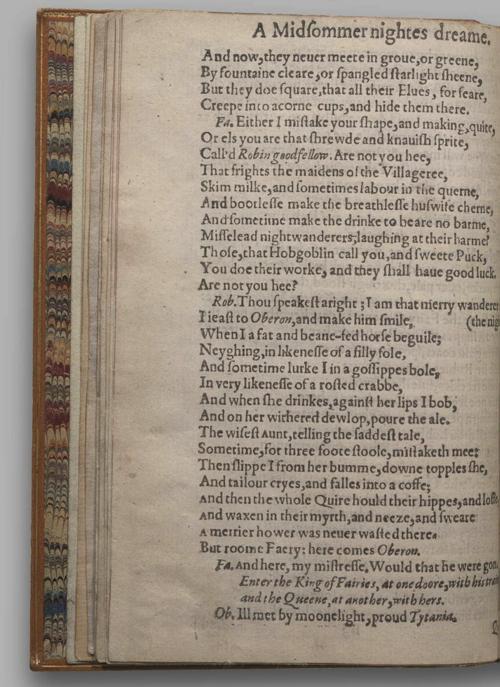 A Midſommer nightes dreame.
And now, they neuer meete in groue, or greene,
By fountaine cleare, or ſpangled ſtarlight ſheene,
But they doe ſquare, that all their Elues, for feare,
Creepe into acorne cups, and hide them there.
Fa. Either I miſtake your ſhape, and making, quite,
Or els you are that ſhrewde and knauiſh ſprite,
Call'd Robin goodfellow. Are not you hee,
That frights the maidens of the Villageree,
Skim milke, and ſometimes labour in the querne,
And bootleſſe make the breathleſſe huſwife cherne,
And ſometime make the drinke to beare no barme,
Miſſelead nightwanderers, laughing at their harme?
Thoſe, that Hobgoblin call you, and ſweete Puck,
You doe their worke, and they ſhall haue good luck.
Are not you hee?
Rob. Thou ſpeakeſt aright; I am that merry wanderer
I ieaſt to Oberon, and make him ſmile, (the nig
When I a fat and beane-fed horſe beguile;
Neyghing, in likeneſſe of a filly fole,
And ſometime lurke I in a goſſippes bole,
In very likeneſſe of a roſted crabbe,
And when ſhe drinkes, againſt her lips I bob,
And on her withered dewlop, poure the ale.
The wiſeſt Aunt, telling the ſaddeſt tale,
Sometime, for three foote ſtoole, miſtaketh mee:
Then ſlippe I from her bumme, downe topples ſhe,
And tailour cryes, and falles into a coffe;
And then the whole Quire hould their hippes, and loffe
And waxen in their myrth, and neeze, and ſweare
A merrier hower was neuer waſted there.
But roome Faery: here comes Oberon.
Fa. And here, my miſtreſſe. Would that he were gon
Enter the King of Fairies, at one doore, with his tra
and the Queene, at another, with hers.
Ob. Ill met by moonelight, proud Tytania.